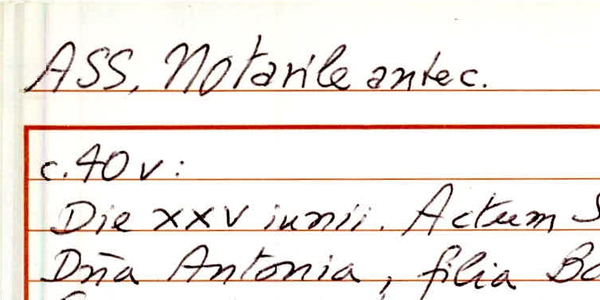 ASS, Notarile antec.
c. 40 v:
Die XXV iunii. Actum S
Dña Antonia, filia Ba